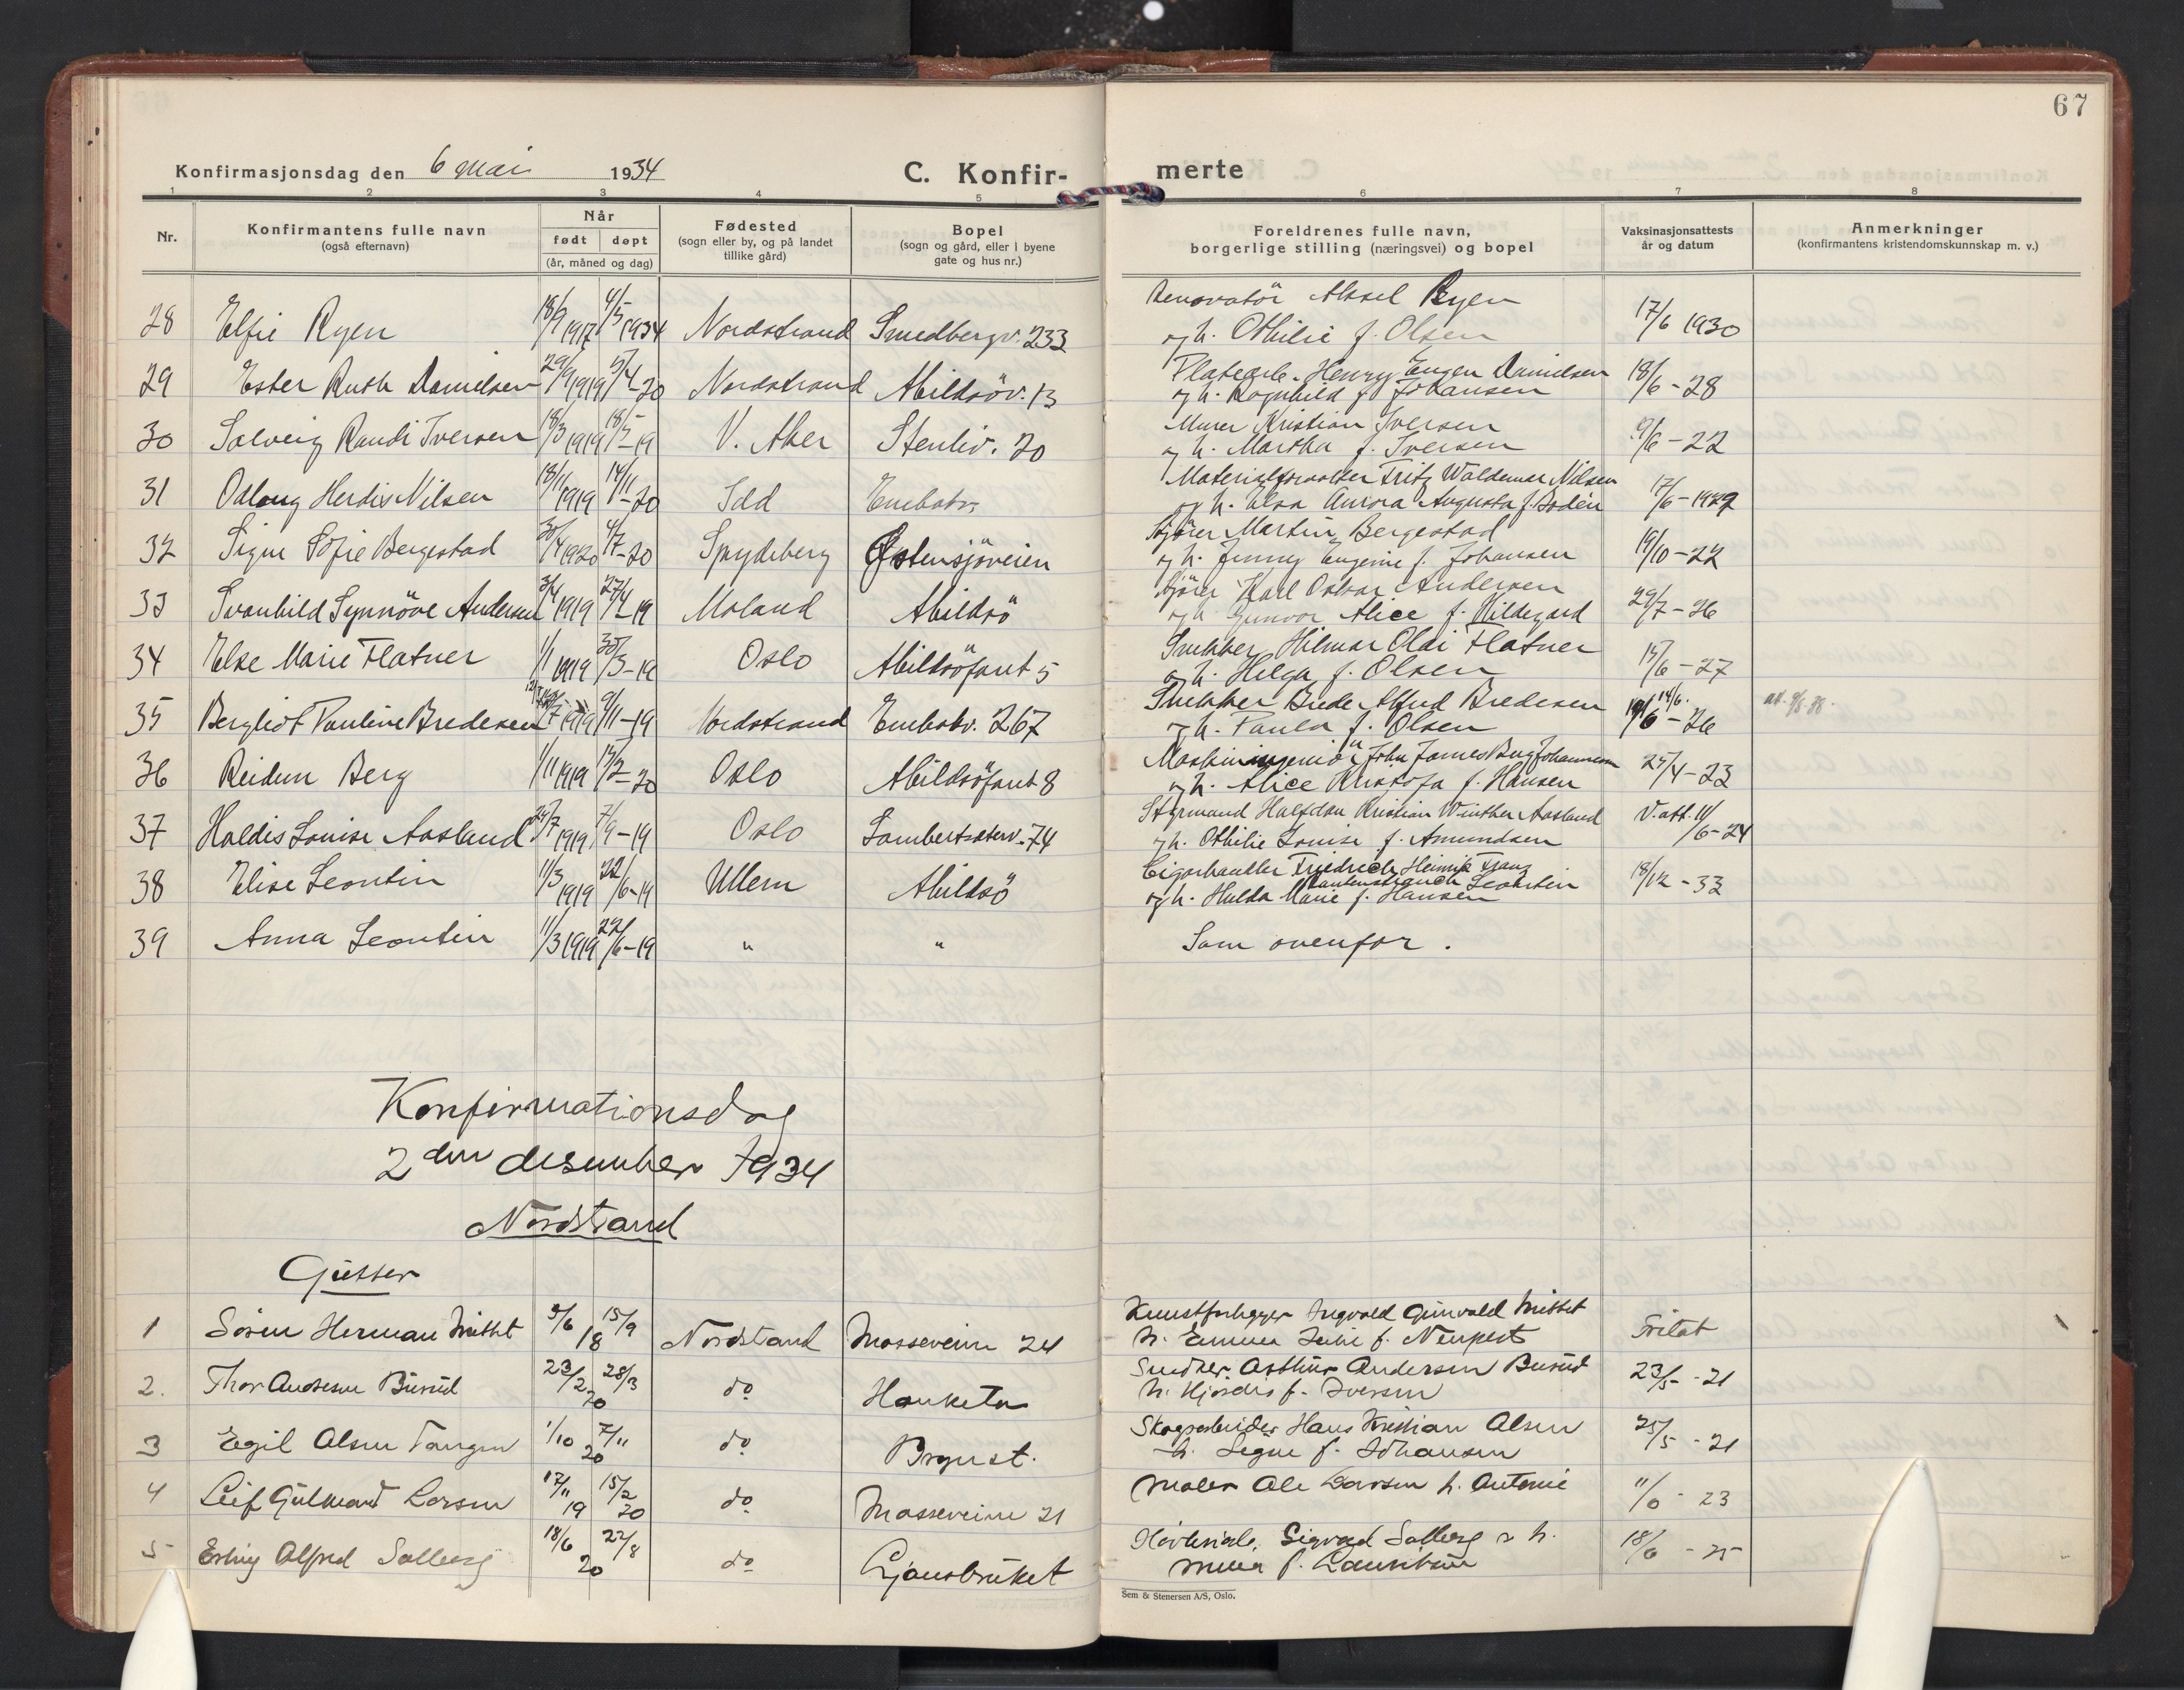 67
Konfirmasjonsdag den 6 mai 1934
C. Konfir-
merte
1 2 3 4 5 6 7 8
Nr.
Konfirmantens fulle navn
(også efternavn)
Når
født døpt
(år, måned og dag)
Fødested
(sogn eller by, og på landet
tillike gård)
Bopel
(sogn og gård, eller i byene
gate og hus nr.)
Foreldrenes fulle navn,
borgerlige stilling (næringsvei) og bopel
Vaksinasjonsattests
år og datum
Anmerkninger
(konfirmantens kristendomskunnskap m. v.)
Renovatör Aksel Ryen
28 Elfie Ryen 18/9 1917 4/5 1934 Nordstrand Smedbergv. 233 og h. Othilie f. Olsen 17/6 1930
Platearb. Henry Eugen Danielsen
29 Ester Ruth Danielsen 29/9 1919 5/4-20 Nordstrand Abildsöv. 13 og h. Ragnhild f. Johansen 18/6-28
Murer Kristian Iversen
30 Solveig Randi Iversen 18/3 1919 18/5-19 V. Aker Stenliv. 20 og h. Martha f. Iversen 9/6-22
Materialforvalter Fritz Waldemar Nilsen
31 Odlaug Herdis Nilsen 18/11 1919 14/11-20 Idd Enebakv. og h. Elsa Aurora Augusta f. Bodén 17/6-1929
Kjörer Martin Bergestad
32 Signe Sofie Bergestad 30/4 1920 4/7-20 Spydeberg Østensjöveien og h. Jenny Eugenie f. Johansen 19/10-22
Kjörer Karl Oskar Andersen
33 Svanhild Synnöve Andersen 3/4 1919 27/4-19 Moland Abildsö og h. Gunvor Alice f. Hildegard 29/7-26
Snekker Hilmar Oldi Flatner
34 Else Marie Flatner 1/1 1919 30/3-19 Oslo Abildsöfaret 5 og h. Helga f. Olsen 15/6-27
Snekker Breder Alfred Bredesen 14/6.
35 Bergliot Pauline Bredesen 1919 9/11-19 Nordstrand Enebakv. 267 og h. Paula f. Olsen 19/6-26
Maskiningeniör John James Berg Johannesen
36 Reidun Berg 1/11 1919 15/2-20 Oslo Abildsöfaret 8 og h. Alice Kristofa f. Hansen 25/4-23
Styrmand Halfdan Kristian Winther Aasland
37 Haldis Louise Aasland 29/7 1919 7/9-19 Oslo Lambertseterv. 74 og h. Othilie Louise f. Amundsen V. att. 11/6-24
Cigarhandler Friedrich Heinrik Franz
38 Elise Leontin 11/3 1919 22/6-19 Ullern Abildsö og h. Hulda Marie f. Hansen Leontin 18/12-33
39 Anna Leontin 11/3 1919 22/6-19 " " Som ovenfor.
Konfirmationsdag
2 den desember 1934
Nordstrand
Gutter
Kunstforlegger Ingvald Grinvald Mittet
1 Sören Herman Mittet 5/6 15/9 18 Nordstrand Mosseveien 24 h. Emma Julie f. Neupert Fritat
Snedker Arthur Andersen Buerud
2. Thor Andersen Buerud 23/2 28/3 20 do Hauketo h. Hjördis f. Iversen 23/5-21
Skogsarbeider Hans Kristian Olsen
3 Egil Olsen Tangen 1/10 7/11 20 do Prgnst. h. Signe f. Johansen 25/5-21
4 Leif Gulmand Larsen 17/11 19 15/2 20 do Mosseveien 21 Maler Ole Larsen h. Antonie 11/6-23
Hövleriarb. Sigvard Solberg & h.
5 Erling Alfred Solberg 18/6 22/8 20 do Ljansbruket f. Lauritsen 18/6-25
Sem & Stenersen A/S, Oslo.